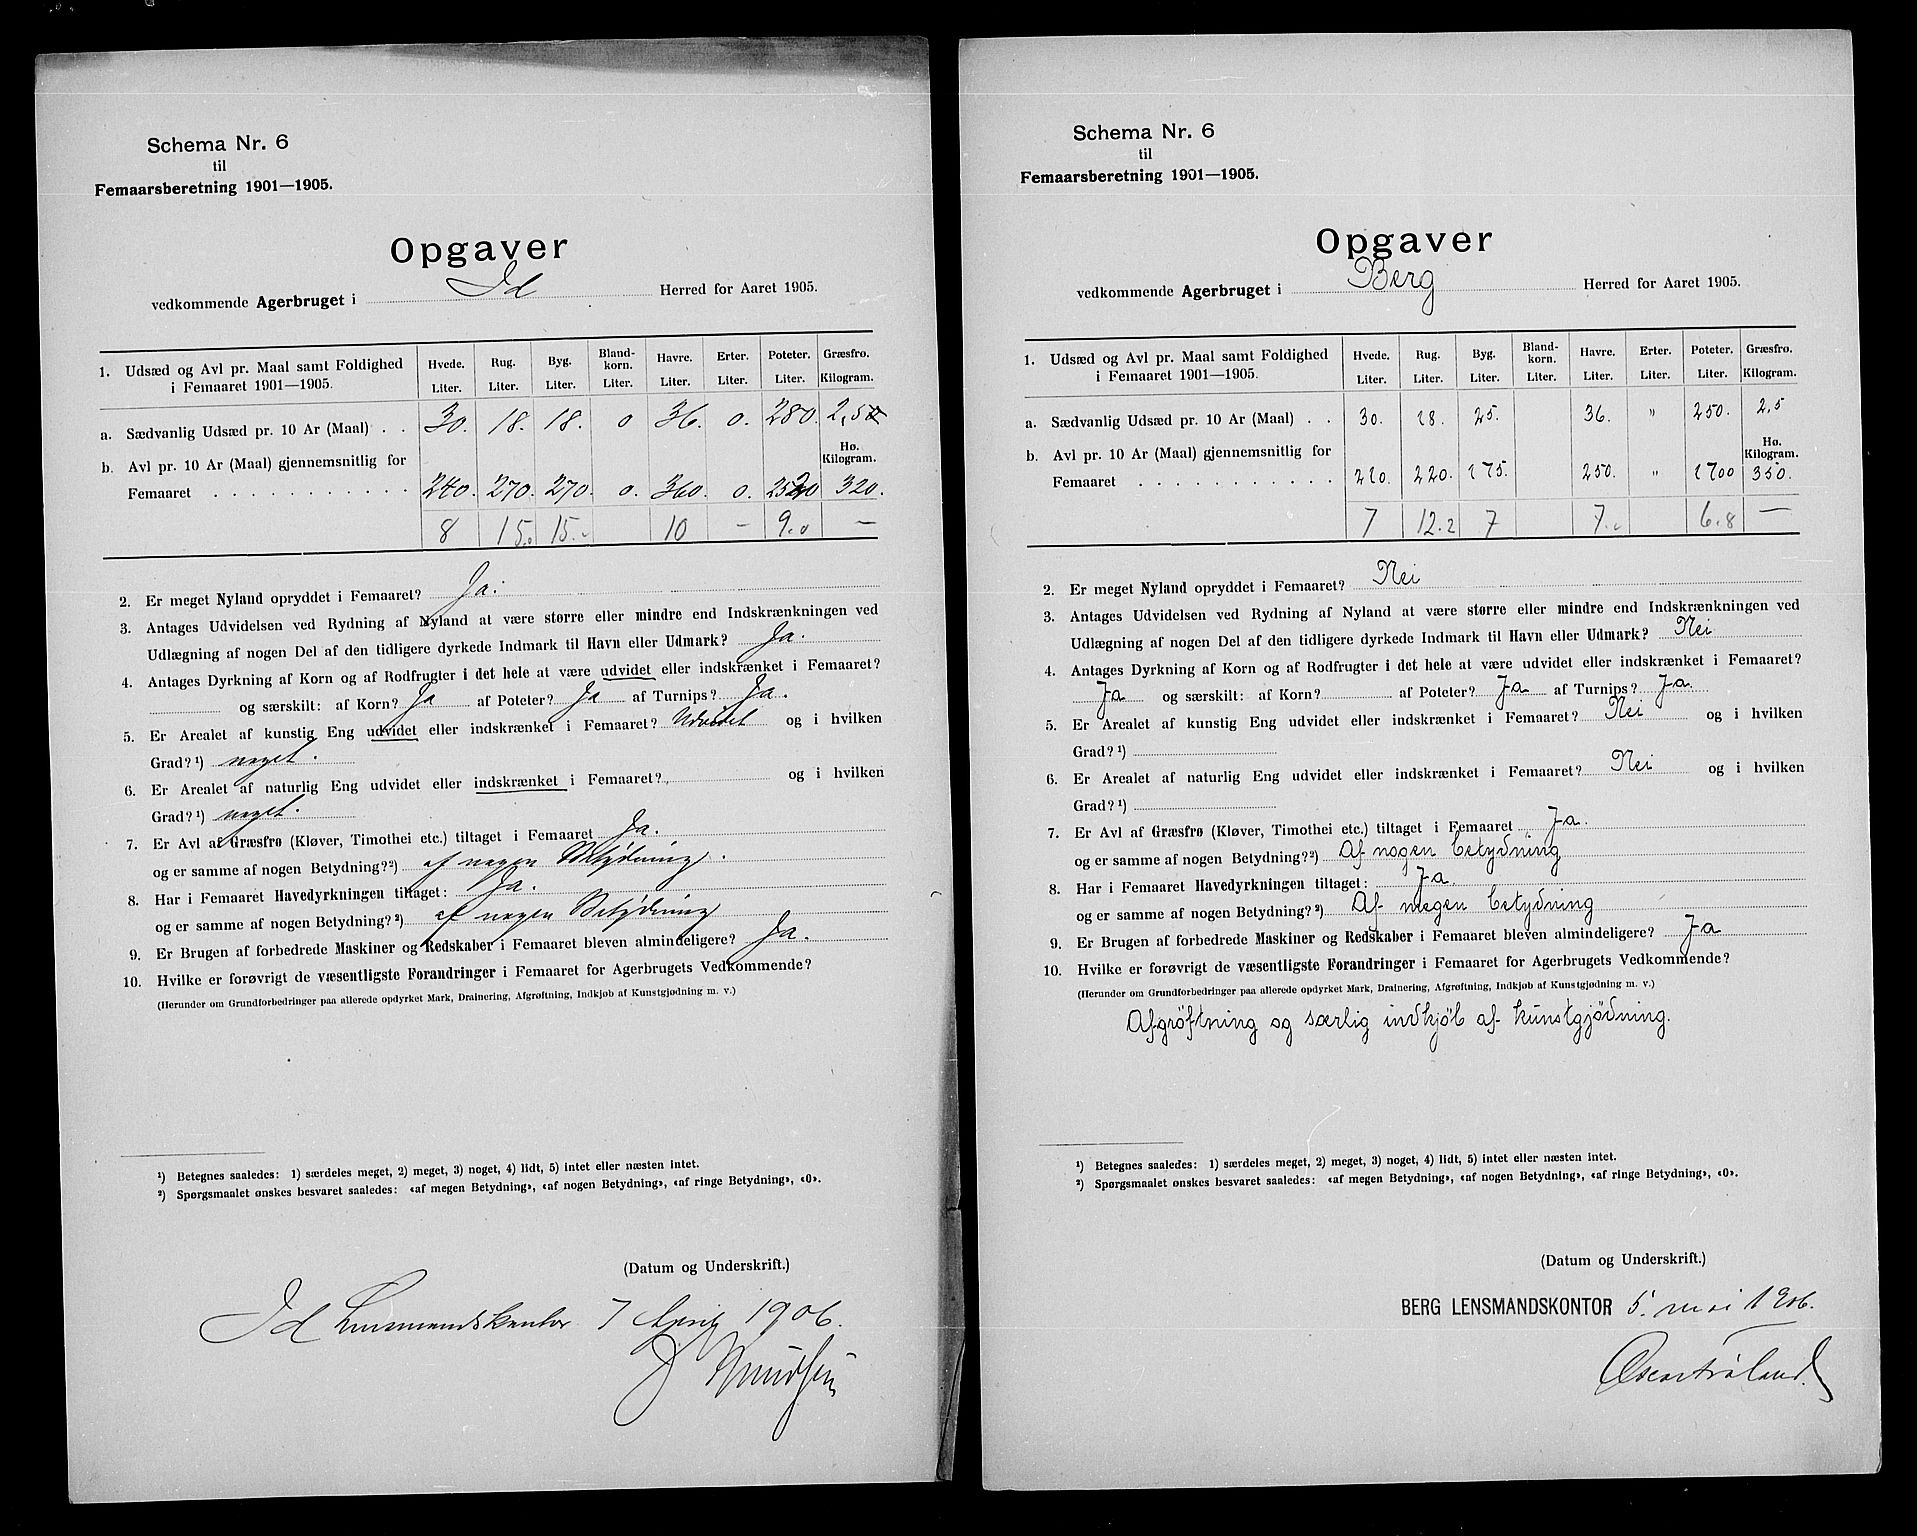 Schema Nr. 6
til
Femaarsberetning 1901—1905.
Opgaver
vedkommende Agerbruget i Id Herred for Aaret 1905.
1. Udsæd og Avl pr. Maal samt Foldighed i Femaaret 1901—1905. Hvede. Liter. Rug. Liter. Byg. Liter. Bland-korn. Liter. Havre. Liter. Erter. Liter. Poteter. Liter. Græsfrø. Kilogram.
a. Sædvanlig Udsæd pr. 10 Ar (Maal) . . 30. 18. 18. 0 36. 0. 280. 2,50
Hø. Kilogram.
b. Avl pr. 10 Ar (Maal) gjennemsnitlig for
Femaaret . . . . . . . . . . . 240. 270. 270. 0. 360. 0. 2520 320.
8 15.0 15.- 10 — 9.0 —
2. Er meget Nyland opryddet i Femaaret? Ja.
3. Antages Udvidelsen ved Rydning af Nyland at være større eller mindre end Indskrænkningen ved
Udlægning af nogen Del af den tidligere dyrkede Indmark til Havn eller Udmark? Ja.
4. Antages Dyrkning af Korn og af Rodfrugter i det hele at være udvidet eller indskrænket i Femaaret?
og særskilt: af Korn? Ja af Poteter? Ja af Turnips? Ja.
5. Er Arealet af kunstig Eng udvidet eller indskrænket i Femaaret? Udvidet og i hvilken
Grad?¹) noget.
6. Er Arealet af naturlig Eng udvidet eller indskrænket i Femaaret? og i hvilken
Grad?¹) noget.
7. Er Avl af Græsfrø (Kløver, Timothei etc.) tiltaget i Femaaret Ja.
og er samme af nogen Betydning?²) af nogen Betydning.
8. Har i Femaaret Havedyrkningen tiltaget: Ja.
og er samme af nogen Betydning?²) af nogen Betydning
9. Er Brugen af forbedrede Maskiner og Redskaber i Femaaret bleven almindeligere? Ja.
10. Hvilke er forøvrigt de væsentligste Forandringer i Femaaret for Agerbrugets Vedkommende?
(Herunder om Grundforbedringer paa allerede opdyrket Mark, Drainering, Afgrøftning, Indkjøb af Kunstgjødning m. v.)
¹) Betegnes saaledes: 1) særdeles meget, 2) meget, 3) noget, 4) lidt, 5) intet eller næsten intet.
²) Spørgsmaalet ønskes besvaret saaledes: «af megen Betydning», «af nogen Betydning», «af ringe Betydning», «0».
(Datum og Underskrift.)
Id Lensmandskontor 7 April 1906.
Knudsen
Schema Nr. 6
til
Femaarsberetning 1901—1905.
Opgaver
vedkommende Agerbruget i Berg Herred for Aaret 1905.
1. Udsæd og Avl pr. Maal samt Foldighed i Femaaret 1901—1905. Hvede. Liter. Rug. Liter. Byg. Liter. Bland-korn. Liter. Havre. Liter. Erter. Liter. Poteter. Liter. Græsfrø. Kilogram.
a. Sædvanlig Udsæd pr. 10 Ar (Maal) . . 30. 18. 25. 36. " 250. 2,5
Hø. Kilogram.
b. Avl pr. 10 Ar (Maal) gjennemsnitlig for
Femaaret . . . . . . . . . . . 210. 220. 175. 250. " 1700 350.
7 12.2 7 7.- 6.8 —
2. Er meget Nyland opryddet i Femaaret? Nei
3. Antages Udvidelsen ved Rydning af Nyland at være større eller mindre end Indskrænkningen ved
Udlægning af nogen Del af den tidligere dyrkede Indmark til Havn eller Udmark? Nei
4. Antages Dyrkning af Korn og af Rodfrugter i det hele at være udvidet eller indskrænket i Femaaret?
Ja og særskilt: af Korn? af Poteter? Ja af Turnips? Ja.
5. Er Arealet af kunstig Eng udvidet eller indskrænket i Femaaret? Nei og i hvilken
Grad?¹)
6. Er Arealet af naturlig Eng udvidet eller indskrænket i Femaaret? Nei og i hvilken
Grad?¹)
7. Er Avl af Græsfrø (Kløver, Timothei etc.) tiltaget i Femaaret Ja.
og er samme af nogen Betydning?²) Af nogen betydning
8. Har i Femaaret Havedyrkningen tiltaget: Ja.
og er samme af nogen Betydning?²) Af megen betydning
9. Er Brugen af forbedrede Maskiner og Redskaber i Femaaret bleven almindeligere? Ja
10. Hvilke er forøvrigt de væsentligste Forandringer i Femaaret for Agerbrugets Vedkommende?
(Herunder om Grundforbedringer paa allerede opdyrket Mark, Drainering, Afgrøftning, Indkjøb af Kunstgjødning m. v.)
Afgrøftning og særlig indkjøb af kunstgjødning.
¹) Betegnes saaledes: 1) særdeles meget, 2) meget, 3) noget, 4) lidt, 5) intet eller næsten intet.
²) Spørgsmaalet ønskes besvaret saaledes: «af megen Betydning», «af nogen Betydning», «af ringe Betydning», «0».
(Datum og Underskrift.)
BERG LENSMANDSKONTOR 5. mai 1906.